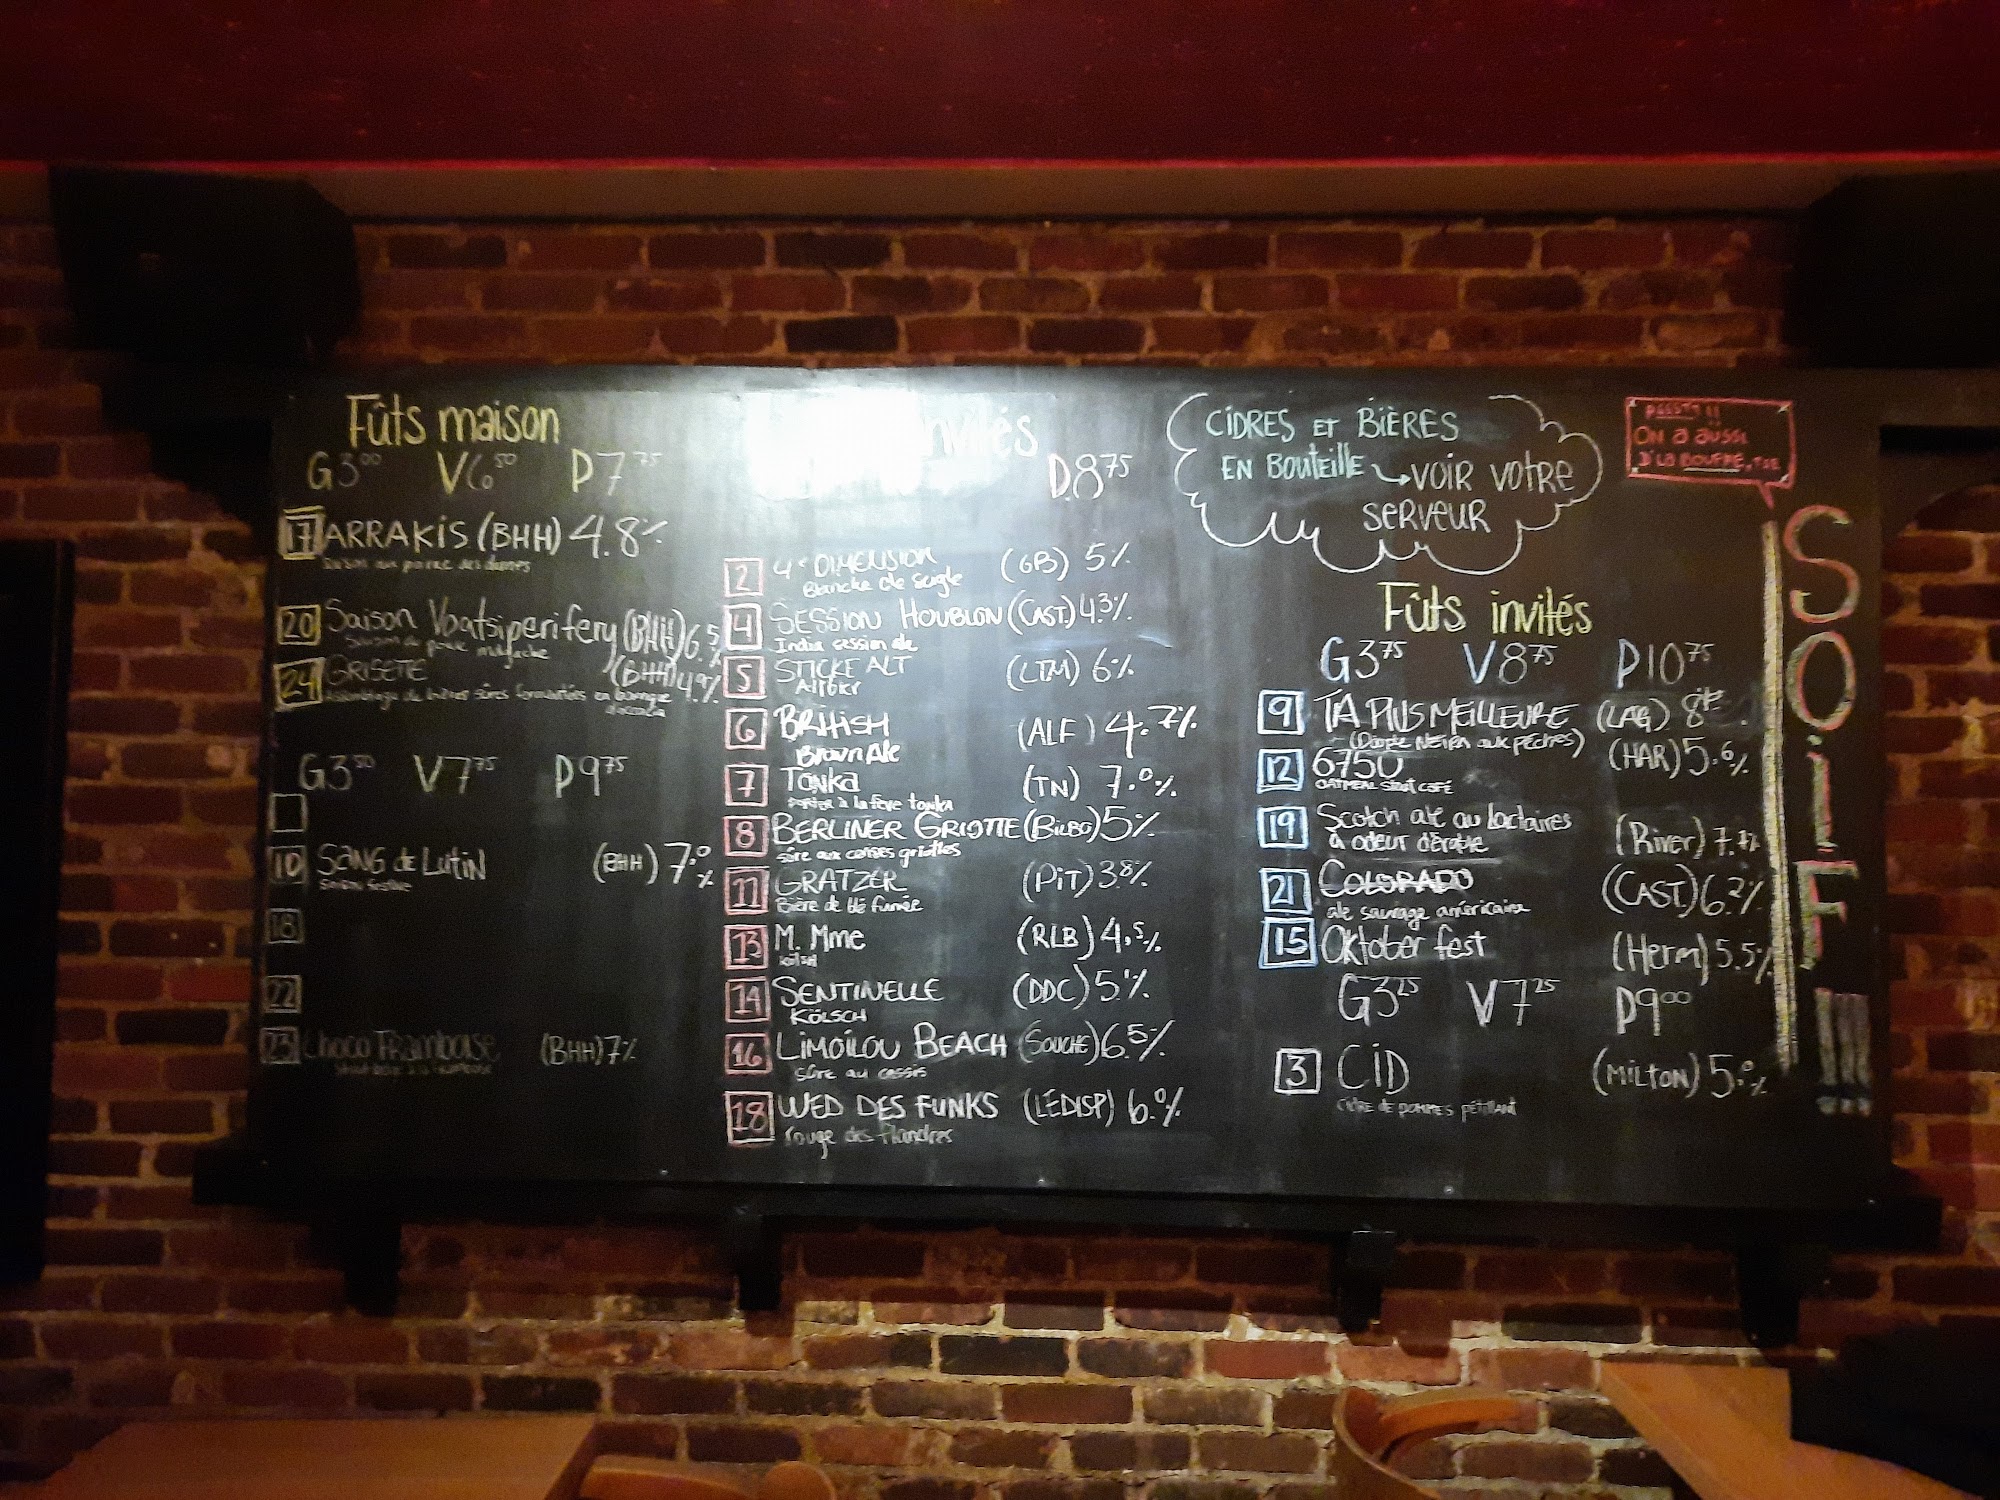 Fûts maison
G3⁰⁰ V6⁵⁰ P7⁷⁵
17 ARRAKIS (BHH) 4.8%
20 Saison Voatsiperifery (BHH) 6.5%
24 GRISETTE (BHH) 4.9%
Assemblage de bières sûres fermentées en barrique
d'acacia
G3⁵⁰ V7⁷⁵ P9⁷⁵
10 SANG de LUTIN (BHH) 7.0%
Saison festive
18
22
23 Choco Framboise (BHH) 7%
invités
P8⁷⁵
2 4e DIMENSION (GB) 5%
Blanche de seigle
4 SESSION HOUBLON (CAST) 4.3%
India session ale
5 STICKE ALT (LTM) 6%
Altbier
6 BRITISH (ALF) 4.7%
Brown Ale
7 Tonka (TN) 7.0%
porter à la fève tonka
8 BERLINER GRIOTTE (BILBO) 5%
sûre aux cerises griottes
11 GRATZER (PIT) 3.8%
Bière de blé fumée
13 M. Mme (RLB) 4.5%
kölsh
14 SENTINELLE (DDC) 5.1%
KÖLSCH
16 LIMOILOU BEACH (SOUCHE) 6.5%
sûre au cassis
18 WED DES FUNKS (LEDISP) 6.0%
rouge des flandres
CIDRES ET BIÈRES
EN BOUTEILLE VOIR VOTRE
SERVEUR
PSSST!!
ON a aussi
D'LA BOUFFE, TSÉ
SOIF !!!
Fûts invités
G3⁷⁵ V8⁷⁵ P10⁷⁵
9 TA PLUS MEILLEURE (LAG) 8%
(Double NEIPA aux pêches)
12 6750 (HAR) 5.6%
OATMEAL STOUT CAFÉ
19 Scotch ale au lactaires
à odeur d'érable (River) 7.1%
21 COLORADO (CAST) 6.2%
ale sauvage américaine
15 Oktoberfest (Herm) 5.5%
G3²⁵ V7²⁵ P9⁰⁰
3 CID (MILTON) 5.0%
CIDRE DE POMMES pétillant